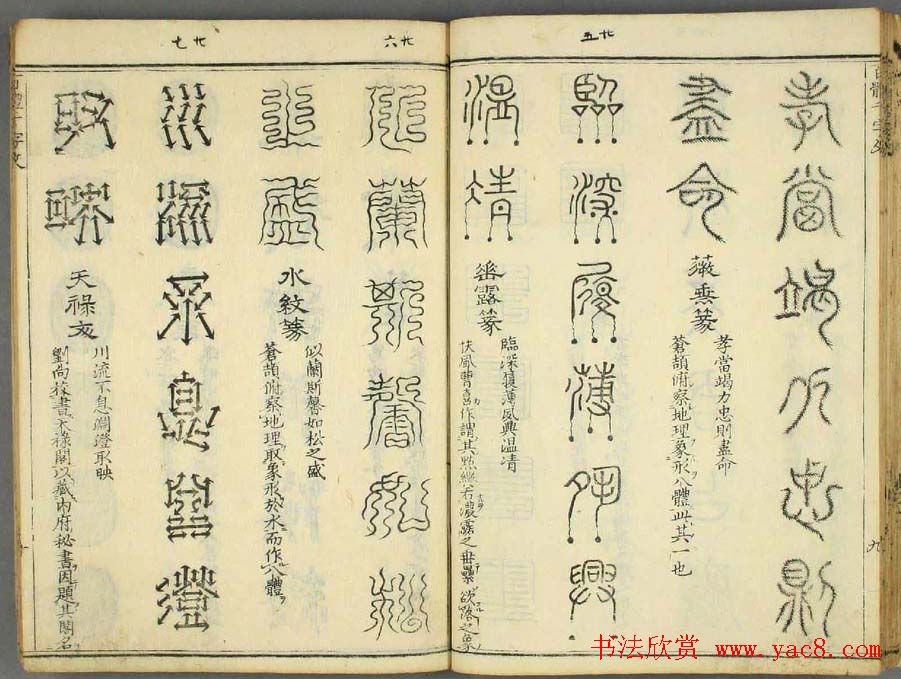 廿五
百體千字文
九
孝當竭力忠則
盡命
薇垂篆
孝當竭力忠則盡命
蒼頡俯察地理象形八體此其一也
臨深履薄夙興
溫凊
垂露篆
臨深履薄夙興温清
扶風曹喜作謂其點綴若濃露之垂纍欲落之象
廿六
似蘭斯馨如松
之盛
水紋篆
似蘭斯馨如松之盛
蒼頡俯察地理取象形於水而作八體
廿七
川流不息淵澄
取映
天祿文
川流不息淵澄取映
劉向校書天祿閣以藏内府秘書因題其閣名
百體千字文
书法欣赏 www.yac8.com